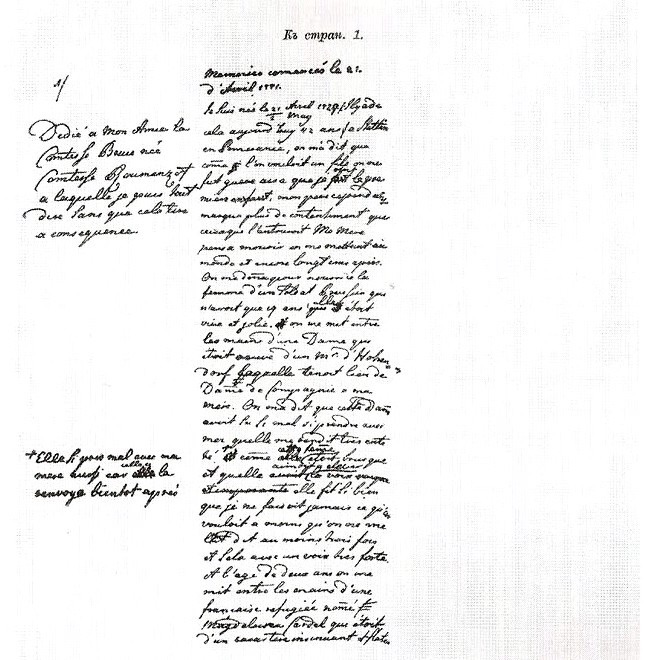 Къ стран. 1.
1/
Memoires comencés le 21
d'Avril 1771.
Je suis née le 21/2 Avril/May 1729 (il y a de
cela aujourd'huy 42 ans) a Stettin
en Pomeranie, on m'a dit que
come l'on vouloit un fils
fut guere aise que je
mon pere cependant
marqua plus de contentement que
ceux qui l'entouroit Ma Mere
pensa mourir en me mettant au
monde et encore longtems après.
On me dona pour nourice la
femme d'un Soldat Prussien qui
n'avoit que 19 ans elle étoit
vive et jolie. on me mit entre
les mains d'une Dame qui
étoit veuve d'un Mr. d'Hohen
dorf laquelle tenoit lieu de
Dame de Compagnie a ma
mere. On m'a dit que cette Dame
avoit su si mal s'y prendre avec
moi quelle me rendit très enté
elle fit si bien
que je ne faisoit jamais ce qu'on
vouloit a moins qu'on ne me
l'eut dit au moins trois fois
et cela avec une voix tres forte.
A l'age de deux ans on me
mit entre les mains d'une
francaise refugiée nomé
Magdeleine Cardel qui étoit
d'un caractere insinuant
Dedié a mon Amie la
Comtesse Bruce née
Comtesse Roumanzof
a laquelle je peux tout
dire sans que cela tire
a consequence.
+ Elle s'y prit mal avec ma
mere aussi car celle la
renvoya bientot après